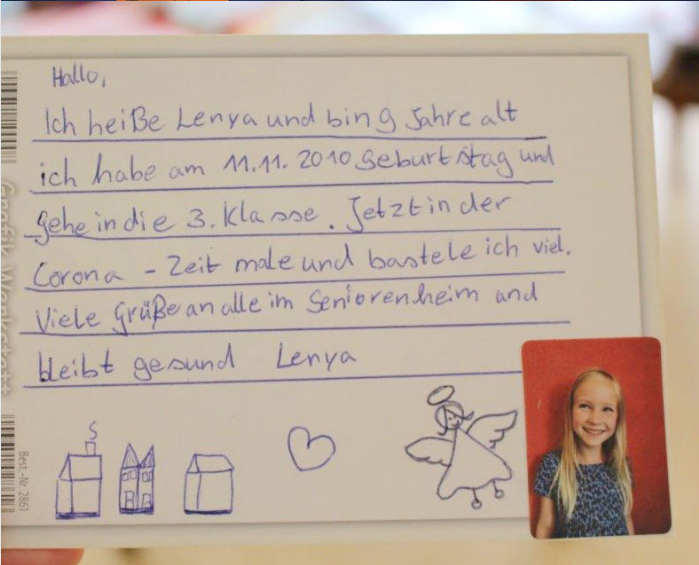 Hallo,
Ich heiße Lenya und bin 9 Jahre alt
ich habe am 11.11. 2010 Geburtstag und
gehe in die 3. Klasse. Jetzt in der
Corona - Zeit male und bastele ich viel.
Viele Grüße an alle im Seniorenheim und
bleibt gesund Lenya
Best.-Nr. 2861